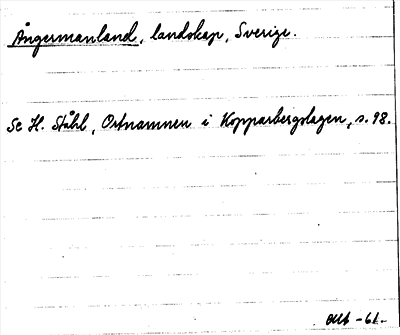 Ångermanland, landskap, Sverige.
Se H. Ståhl, Ortnamnen i Kopparbergslagen, s. 98.
-61.-